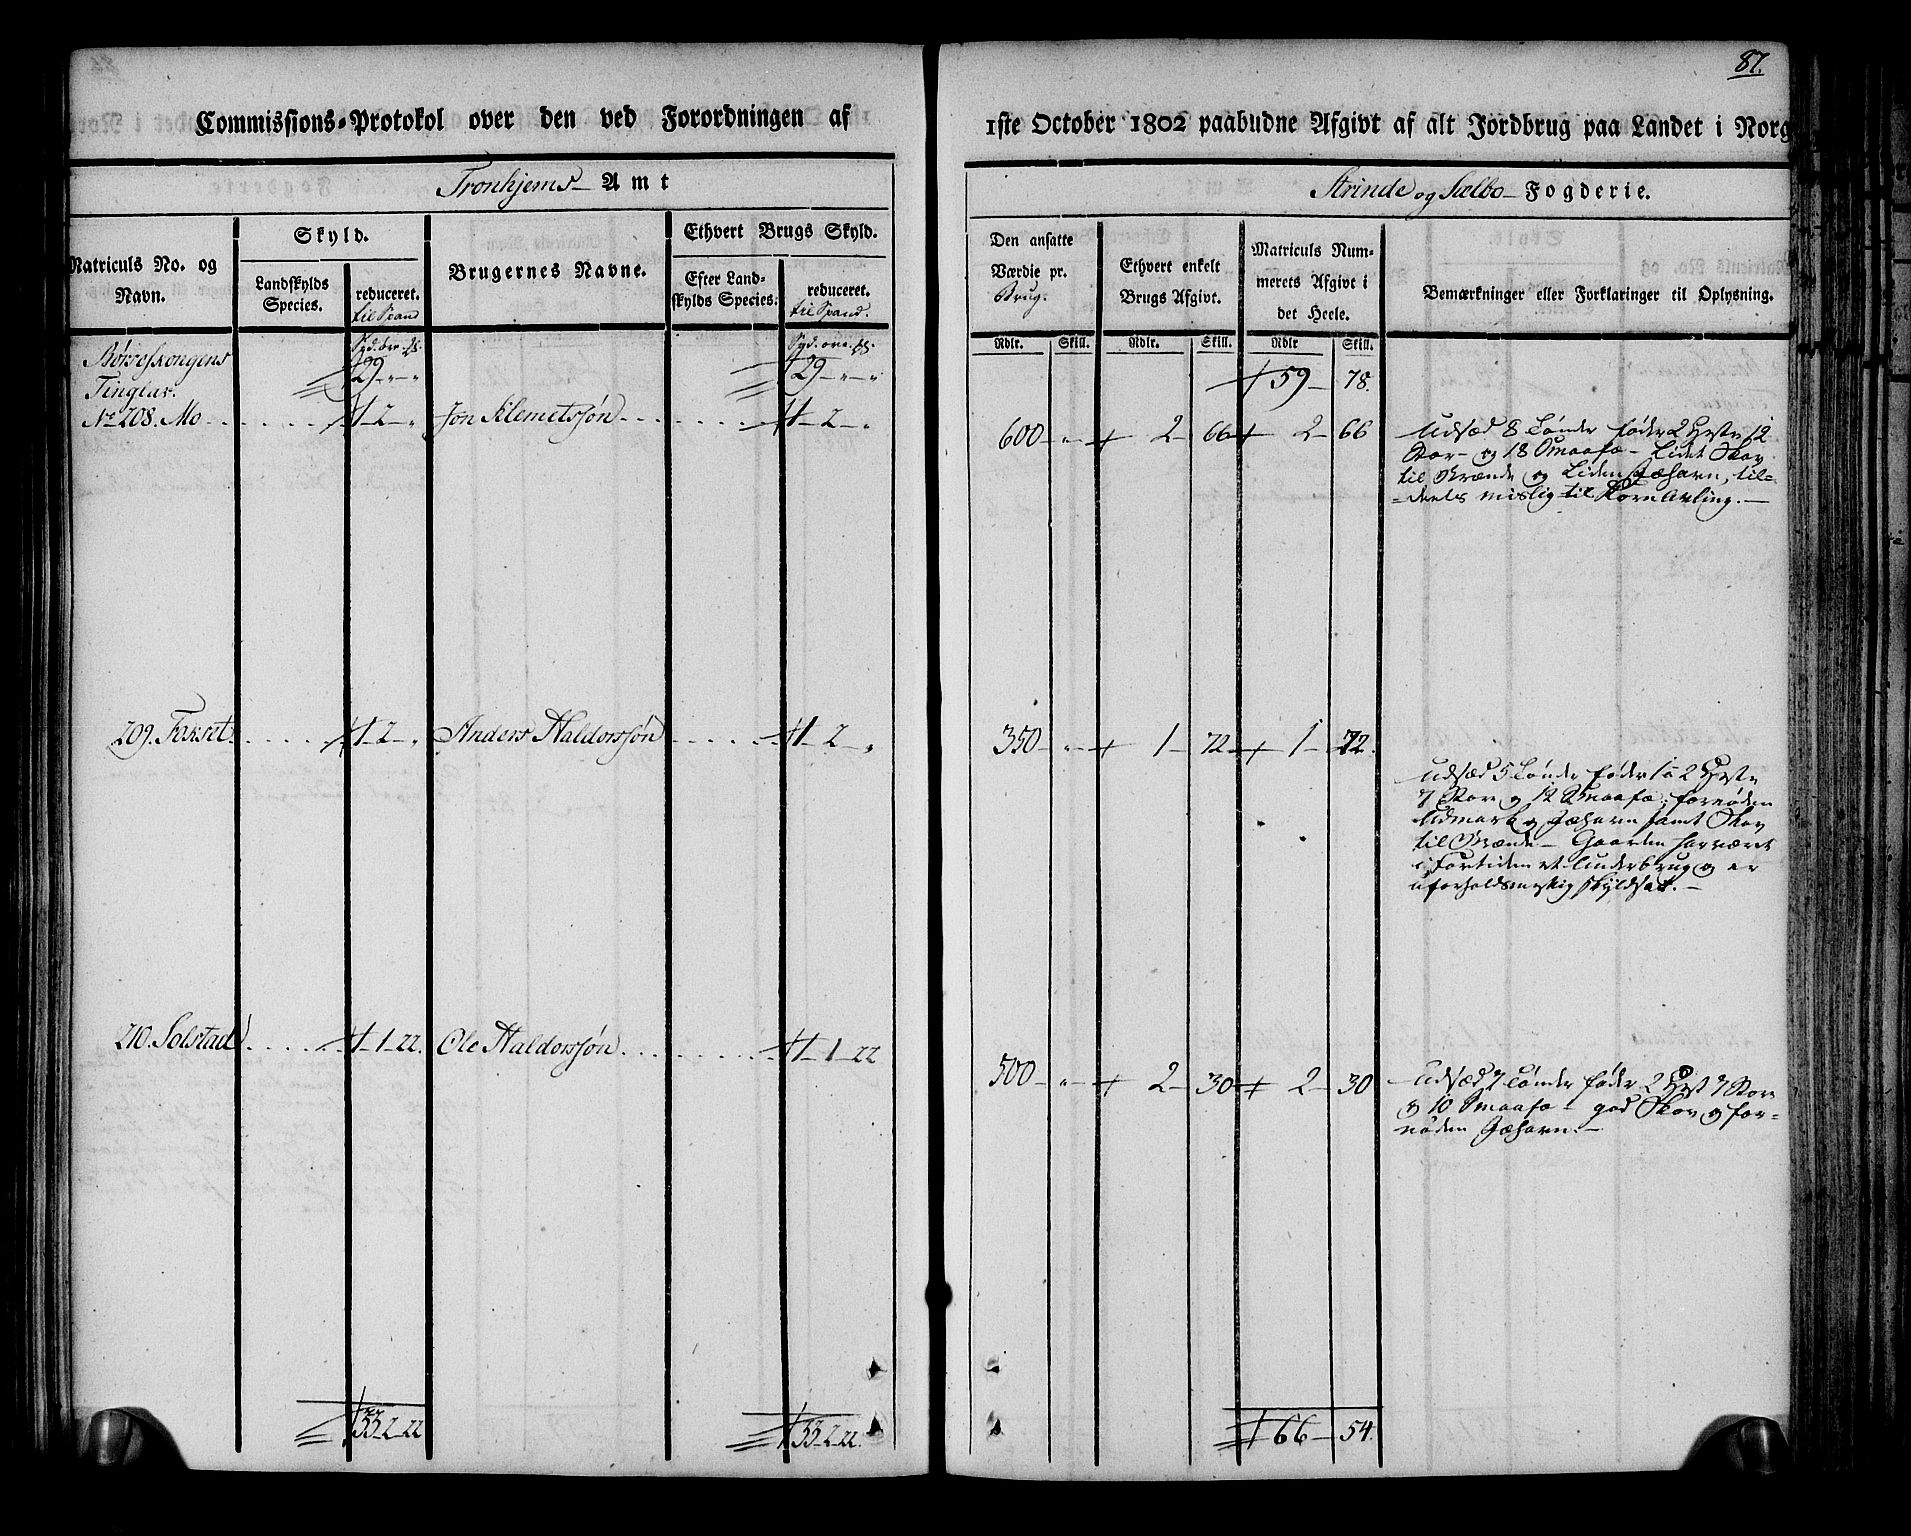 87.
Commissions-Protokol over den ved Forordningen af 1ste October 1802 paabudne Afgivt af alt Jordbrug paa Landet i Norg
Tronhjems Amt
Strinde og Sælbo Fogderie.
Matriculs No. og Navn.
Skyld.
Landskylds Species.
reduceret. til Spand
Brugernes Navne.
Ethvert Brugs Skyld.
Efter Landskylds Species.
reduceret. til Spand.
Den ansatte Værdie pr. Brug.
Ethvert enkelt Brugs Afgivt.
Matriculs Nummerets Afgivt i det Heele.
Bemærkninger eller Forklaringer til Oplysning.
Rdlr. Skill. Rdlr. Skill. Rdlr Skill.
Tinglav. 29 - " - " 29 - " - " 59 - 78.
No 208. Mo 1 - 2 - " Jon Klemetssøn 1 - 2 - " 600 - " 2 - 66 2 - 66
Udsæd 8 Tønder føder 2 Heste 12
Stor- og 18 Smaafæ - Lidet Skov
til Brænde og Liden Fæhavn, til-
deels mislig til Kornavling. -
209. Foxset 1 - 2 - " Anders Haldorssøn 1 - 2 - " 350 - " 1 - 72 1 - 72.
Udsæd 5 Tønder føder 1 a 2 Heste
7 Stor og 12 Smaafæ, fornøden
Udmark og Fæhavn samt Skov
til Brænde - Gaarden har været
i Fortiden et Underbrug og er
uforholdsmæssig skyldsat. -
210. Solstad 1 - 1 - 22. Ole Haldorssøn 1 - 1 - 22 500 - " 2 - 30 2 - 30
Udsæd 7 Tønder føder 2 Hest 7 Stor
og 10 Smaafæ - god Skov og for-
nøden Fæhavn. -
33 - 2 - 22 33 - 2 - 22. 66 - 54.